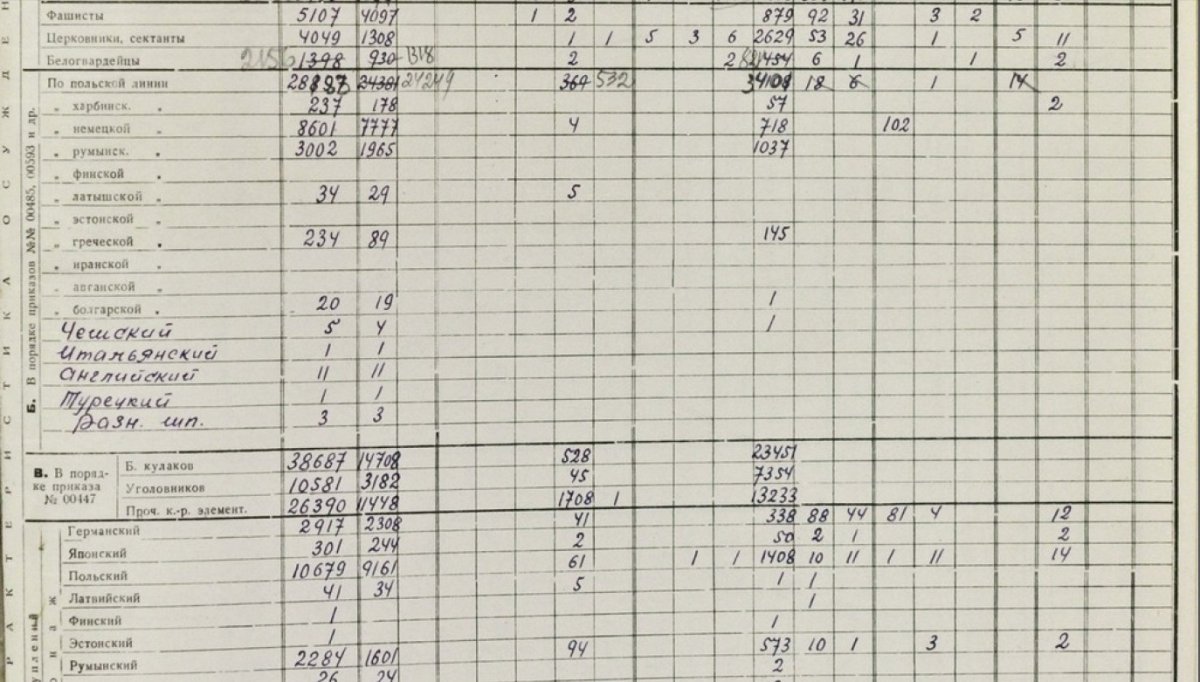 Фашисты 5107 4097 1 2 879 92 31 3 2
Церковники, сектанты 4049 1308 1 1 5 3 6 2629 53 26 1 5 11
Белогвардейцы 2156 1398 930 1318 2 2 6 1 1 2
По польской линии 24249 369 532 18 6 1 14
„ харбинск. „ 237 178 57 2
„ немецкой „ 8601 7777 4 718 102
„ румынск. „ 3002 1965 1037
„ финской „
„ латышской „ 34 29 5
„ эстонской „
„ греческой „ 234 89 145
„ иранской „
„ авганской „
„ болгарской „ 20 19 1
Чешский 5 4 1
Итальянский 1 1
Английский 11 11
Турецкий 1 1
Разн. шп. 3 3
Б. В порядке приказов №№ 00485, 00593 и др.
В. В поряд-
ке приказа
№ 00447
Б. кулаков 38687 14708 528 23451
Уголовников 10581 3182 45 7354
Проч. к.-р. элемент. 26390 11448 1708 1 13233
Германский 2917 2308 41 338 88 44 81 4 12
Японский 301 244 2 50 2 1 2
Польский 10679 9161 61 1 1 1408 10 11 1 11 14
Латвийский 41 34 5 1 1
Финский 1 1
Эстонский 1 1
Румынский 2284 1601 94 573 10 1 3 2
26 24 2